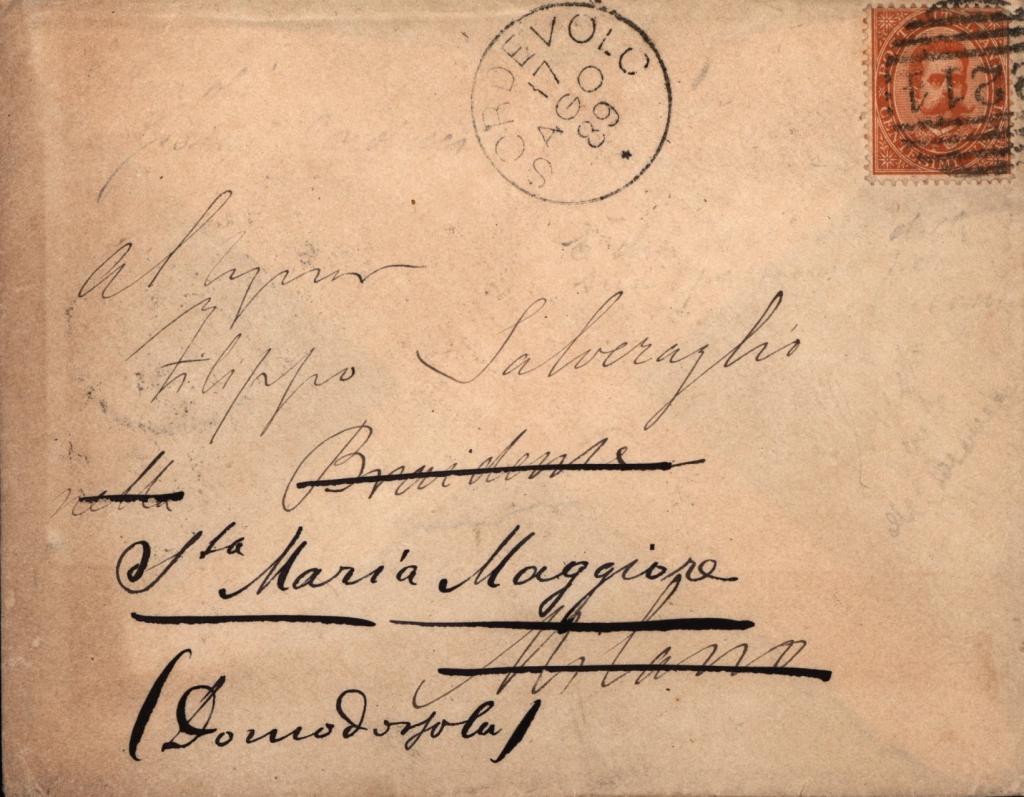 SORDEVOLO
17
AGO
89
2211
Al Signor
Filippo Salveraglio
nella Braidense
Sta Maria Maggiore
Milano
(Domodossola)